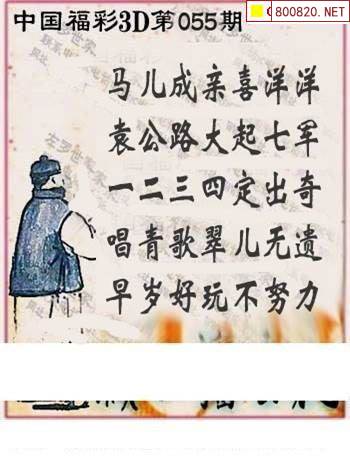 中国福彩3D第055期
800820.NET
马儿成亲喜洋洋
袁公路大起七军
一二三四定出奇
唱青歌翠儿无遗
早岁好玩不努力